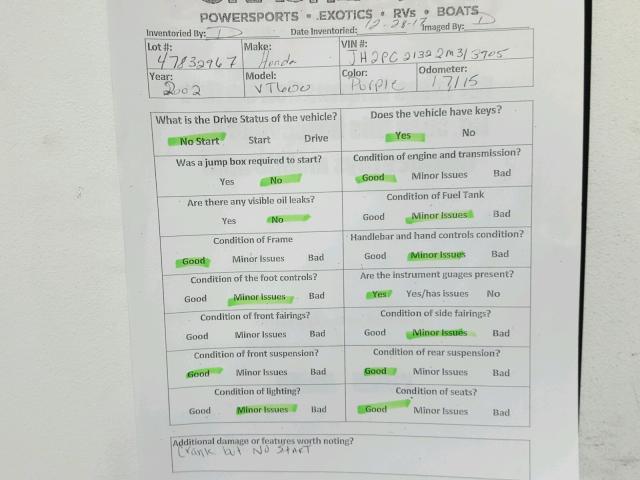 POWERSPORTS • EXOTICS • RVs • BOATS
Inventoried By: D Date Inventoried: 12-28-17 Imaged By: D
Lot #: Make: VIN #:
47832967 Honda JH2PC21322M313705
Year: Model: Color: Odometer:
2002 VT600 Purple 17115
What is the Drive Status of the vehicle? Does the vehicle have keys?
No Start Start Drive Yes No
Was a jump box required to start? Condition of engine and transmission?
Yes No Good Minor Issues Bad
Are there any visible oil leaks? Condition of Fuel Tank
Yes No Good Minor Issues Bad
Condition of Frame Handlebar and hand controls condition?
Good Minor Issues Bad Good Minor Issues Bad
Condition of the foot controls? Are the instrument guages present?
Good Minor Issues Bad Yes Yes/has issues No
Condition of front fairings? Condition of side fairings?
Good Minor Issues Bad Good Minor Issues Bad
Condition of front suspension? Condition of rear suspension?
Good Minor Issues Bad Good Minor Issues Bad
Condition of lighting? Condition of seats?
Good Minor Issues Bad Good Minor Issues Bad
Additional damage or features worth noting?
Crank but NO START